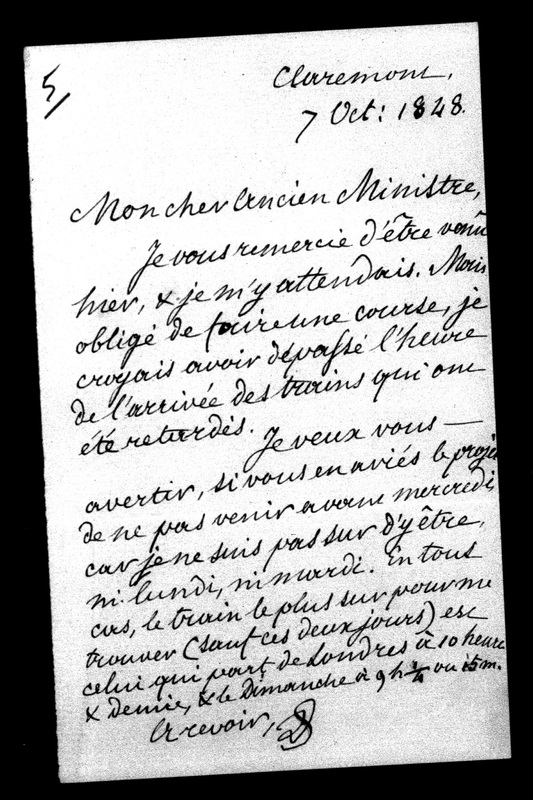 5/
Claremont,
7 Oct: 1848.
Mon cher Ancien Ministre,
Je vous remercie d'être venu
hier, & je m'y attendais. Mais
obligé de faire une course, je
croyais avoir dépassé l'heure
de l'arrivée des trains qui ont
été retardés. Je veux vous —
avertir, si vous en aviés le projet
de ne pas venir avant mercredi
car je ne suis pas sur d'y être,
ni lundi, ni mardi. En tous
cas, le train le plus sur pour me
trouver (sauf ces deux jours) est
celui qui part de Londres à 10 heures
& demie, & le Dimanche à 9 h ¼ ou 15 m.
A revoir,